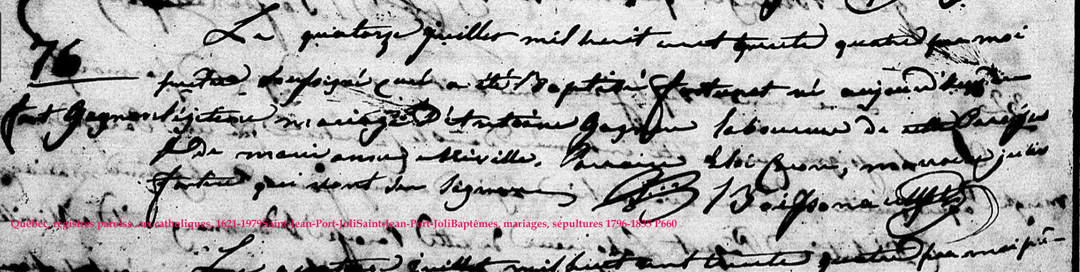 76
Le quatorze juillet mil huit cent trente quatre par moi
prêtre soussigné curé a été Baptisé fortunat né aujourd'hui du
fort Gagnon légitime mariage D'Antoine Gagnon laboureur de cette Paroisse
& de marie anne Miville. Parrain Eloi marraine julie
fortin qui n'ont su signer. Boissonnault Ptre
Québec, registres paroiss. catholiques, 1621-1979 Saint-Jean-Port-JoliSaint-Jean-Port-JoliBaptêmes, mariages, sépultures 1796-1855 P660
Le quatorze juillet mil huit cent trente quatre par moi prê-